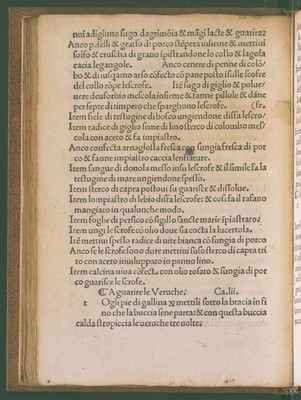 nui a digiuno sugo dagrimõia & mãgi lacte & guarira
Anco piselli & grasso di porco stẽpera insieme & mettiui
solfo & cruscha di grano ipistrandone lo collo & lagola
eacia le gangole. Anco cenere di penne di colõ
bo & di iusquamo arso cõfecto cõ pane posto isulle scofre
del collo rõpe le scrofe. Itẽ sugo di giglio & polue
uere deusorbio mescola insieme & fanne pillole & dãne
per septe di impero che sparghono le scrofe. (se.
Item fiele di testugine di bosco ungiendone dissa le scro
Item radice di giglio seme di lino sterco di colombo mes
cola con aceto & fa impiastro.
Anco confecta arnaglossa fresca con sungia fresca di por
co & fanne impiastro caccia lenfiature.
Item sangue di donola messo insu lescrofe & il simile fa la
testugine di mare ungiendone spesso.
Item sterco di capra postoui su guarisce & dissolue.
Item lompiastro di lebio dissa lescrofe: & cosi fa il rafano
mangiato in qualunche modo.
Item foglie di persico cõ sigillo sancte marie ipiastraro
Item ungi le scrofe cõ olio doue sia cocta la lucertola.
Itẽ mettiui spesso radice di uite bianca cõ sungia di porco
Anco se le scrofe sono dure mettiui suso sterco di capra tri
to con aceto inuiluppato in panno lino.
Item calcina uiua cõfect. con olio rosato & sungia di por
co guarisce le scrofe.
¶ A guarire le Veruche. Ca. lii.
t Ogli pie di gallina & mettili sotto la bracia in fi
no che la buccia sene parta: & con questa buccia
calda stropiccia le ueruche tre uolte.